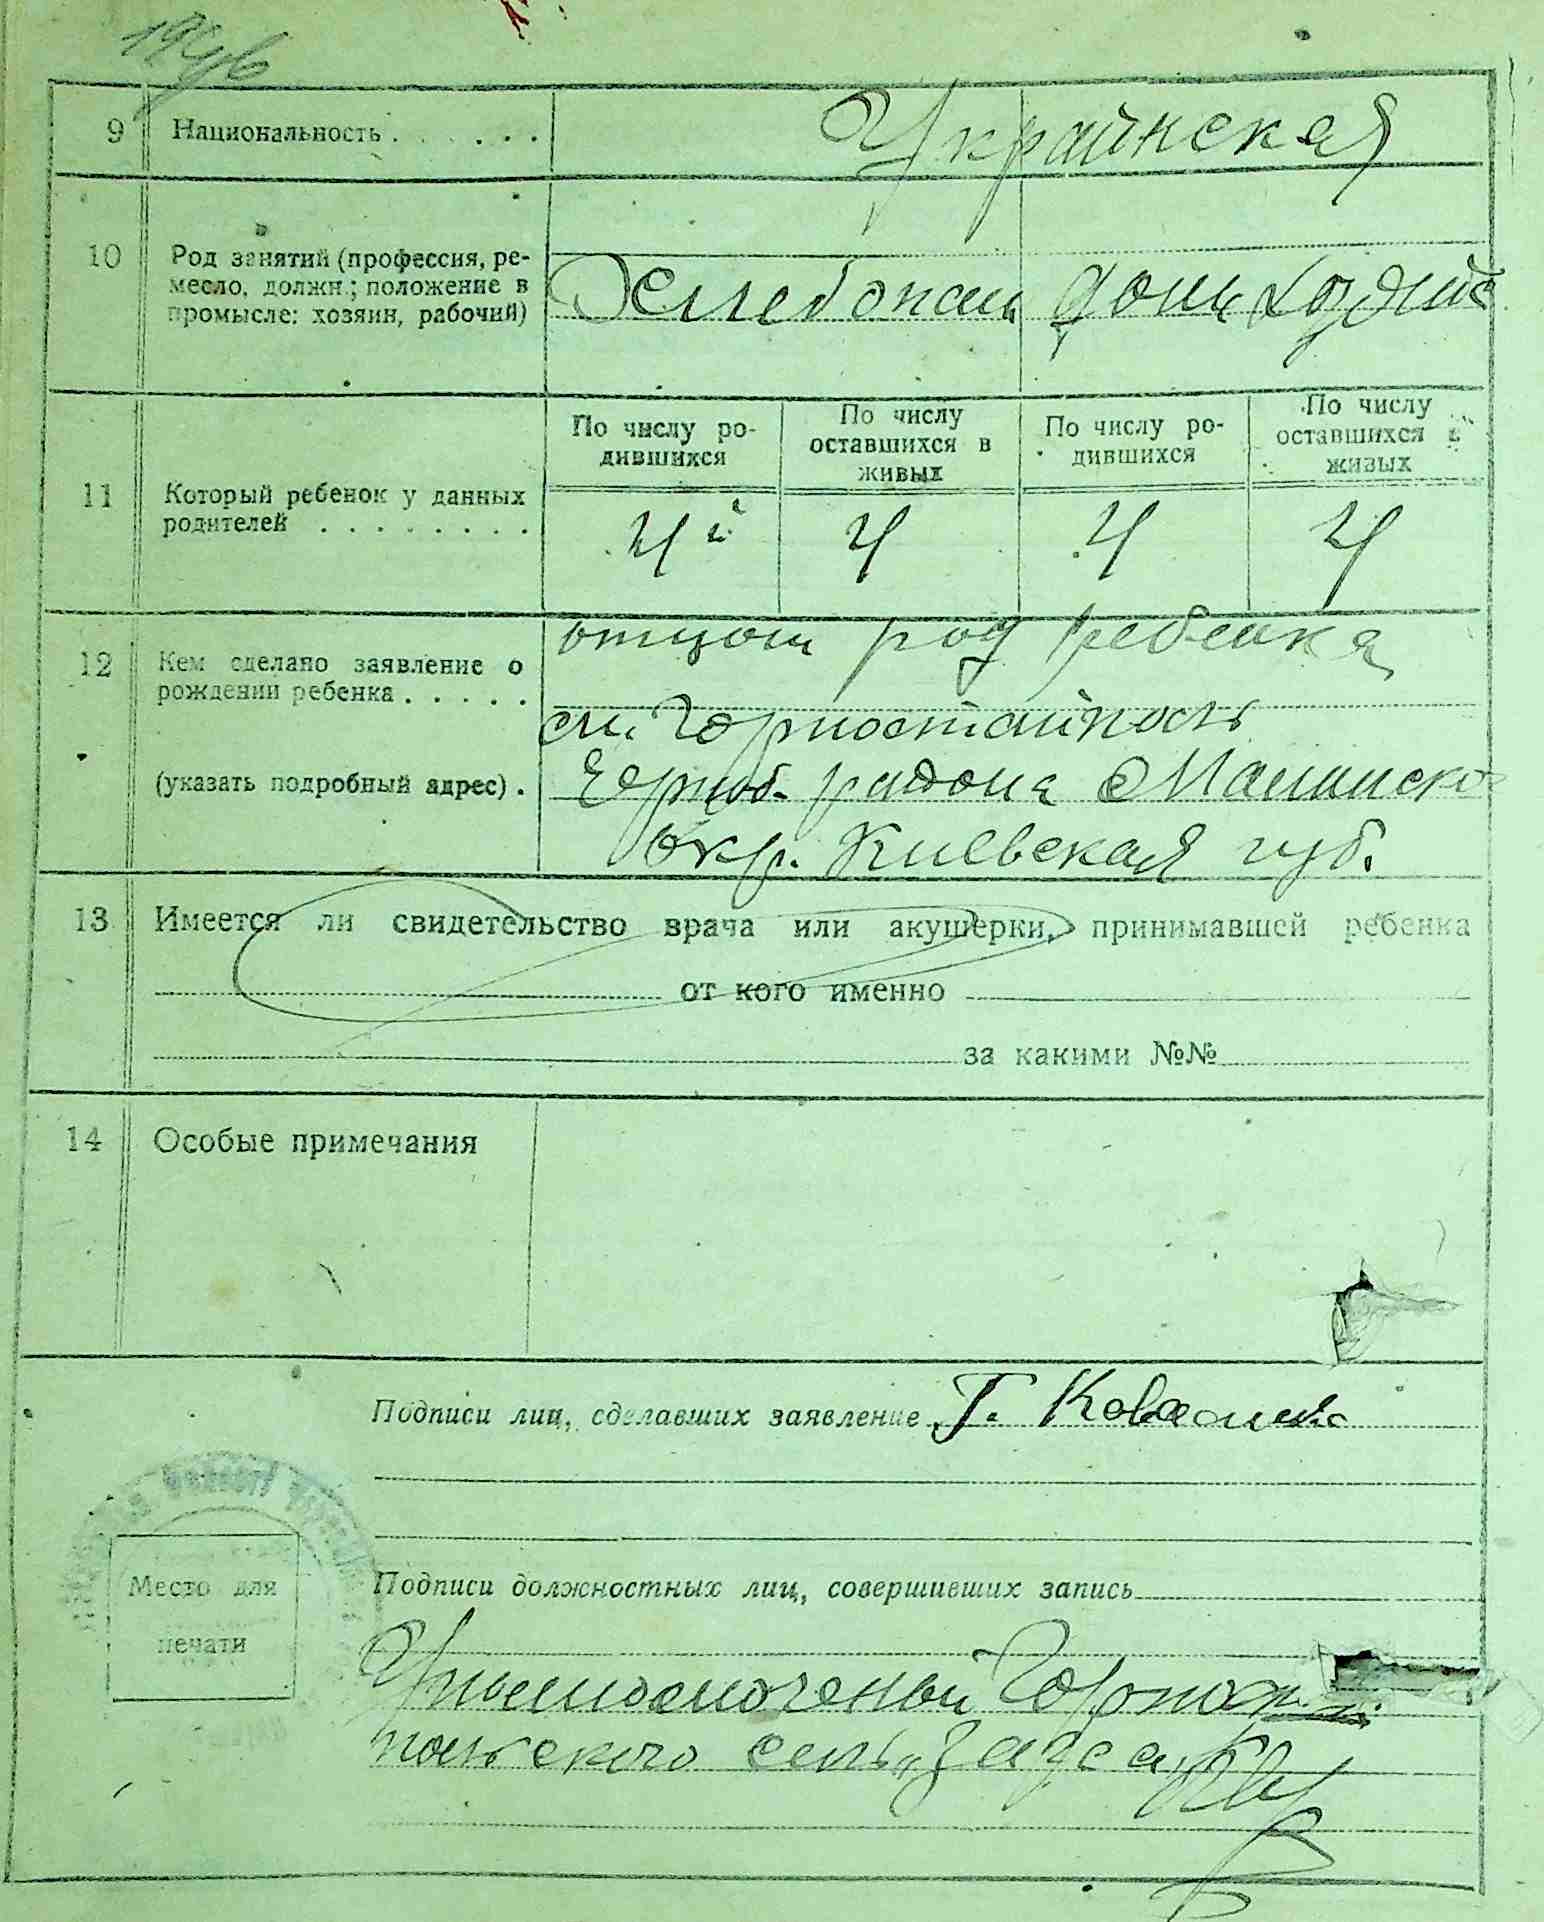 9 Национальность . . . . . . Украинская
10 Род занятий (профессия, ре-
месло, должн.; положение в
промысле: хозяин, рабочий)
Хлебопаш дом хозяйс
По числу ро-
дившихся
По числу
оставшихся в
живых
По числу ро-
дившихся
По числу
оставшихся в
живых
11 Который ребенок у данных
родителей . . . . . . . .
4й 4 4 4
12 Кем сделано заявление о
рождении ребенка . . . . .
(указать подробный адрес) .
отцом род ребенка
см. Горностайполь
района Малинско
окр. Киевская губ.
13 Имеется ли свидетельство врача или акушерки, принимавшей ребенка
от кого именно
за какими №№
14 Особые примечания
Подписи лиц, сделавших заявление Г. Коваленко
Подписи должностных лиц, совершивших запись
Место для
печати
Уполномоченый
польского сель. загса